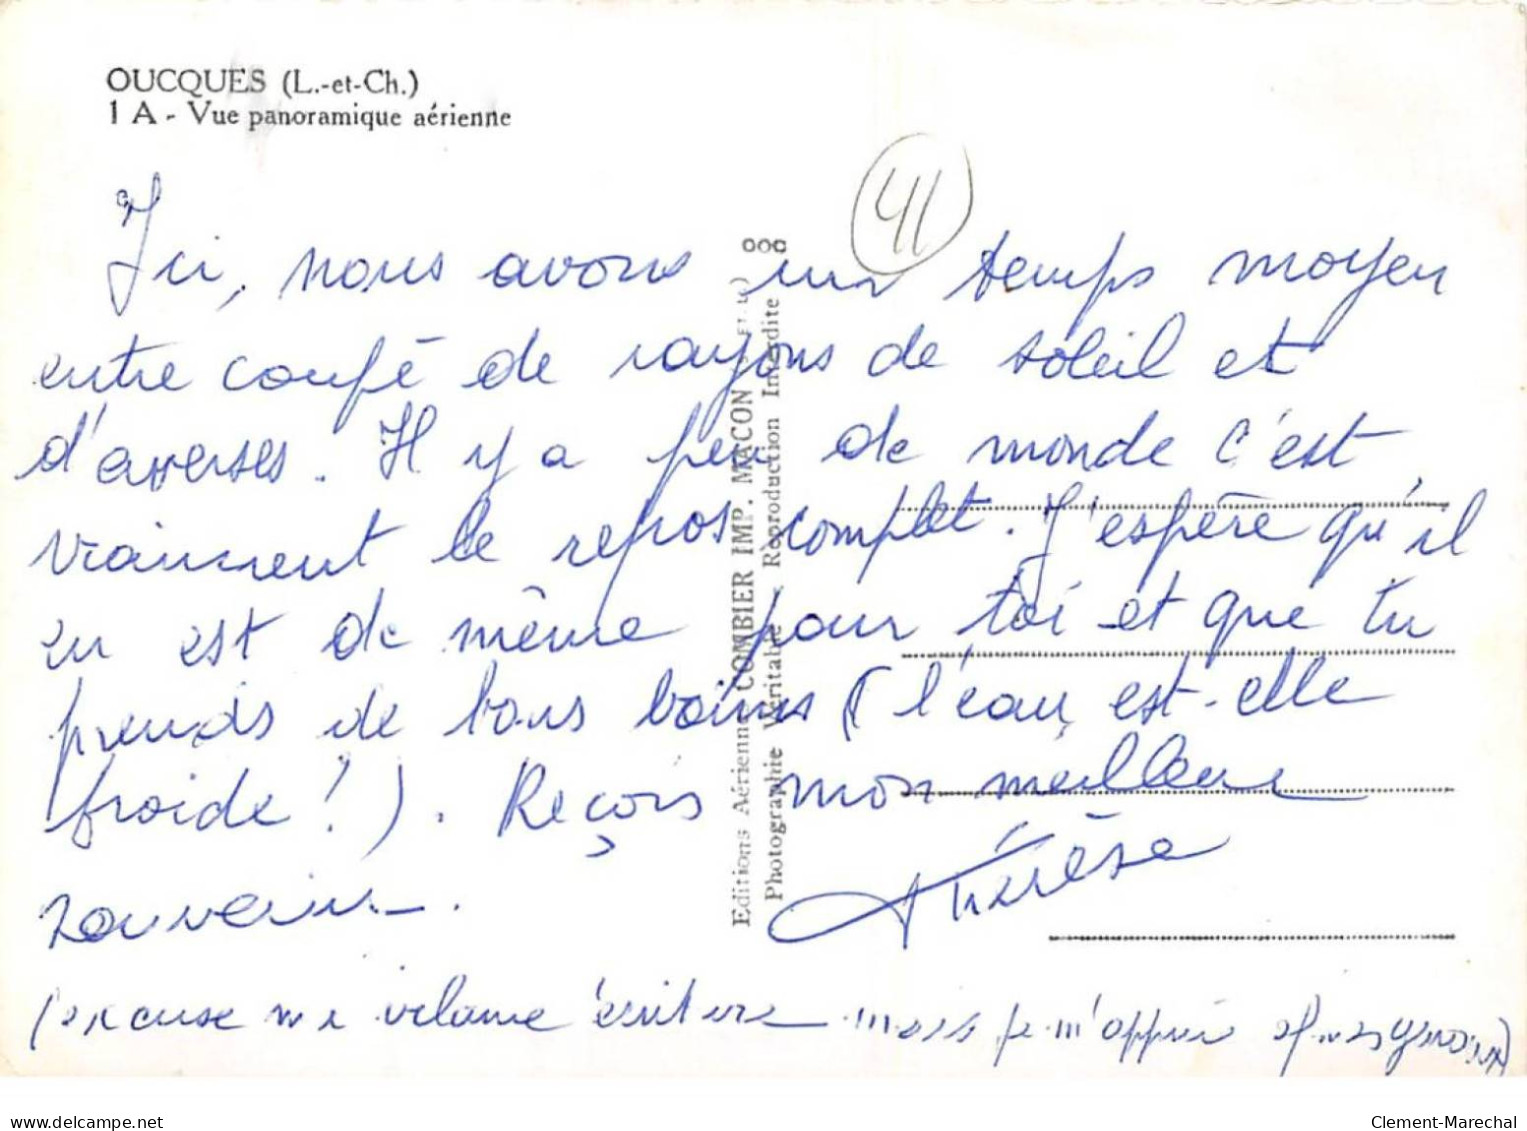 OUCQUES (L.-et-Ch.)
1 A - Vue panoramique aérienne
41
Ici, nous avons un temps moyen
entre coupé de rayons de soleil et
d'averses. Il y a peu de monde c'est
vraiment le repos complet. J'espère qu'il
en est de même pour toi et que tu
prends de bons bains (l'eau est-elle
froide !). Reçois mon meilleur
souvenir.
Thérèse
(excuse ma vilaine écriture mais je m'appuie
Editions Aériennes COMBIER IMP. MACON
Photographie Véritable - Reproduction Interdite
delcampe.net
Clement-Marechal